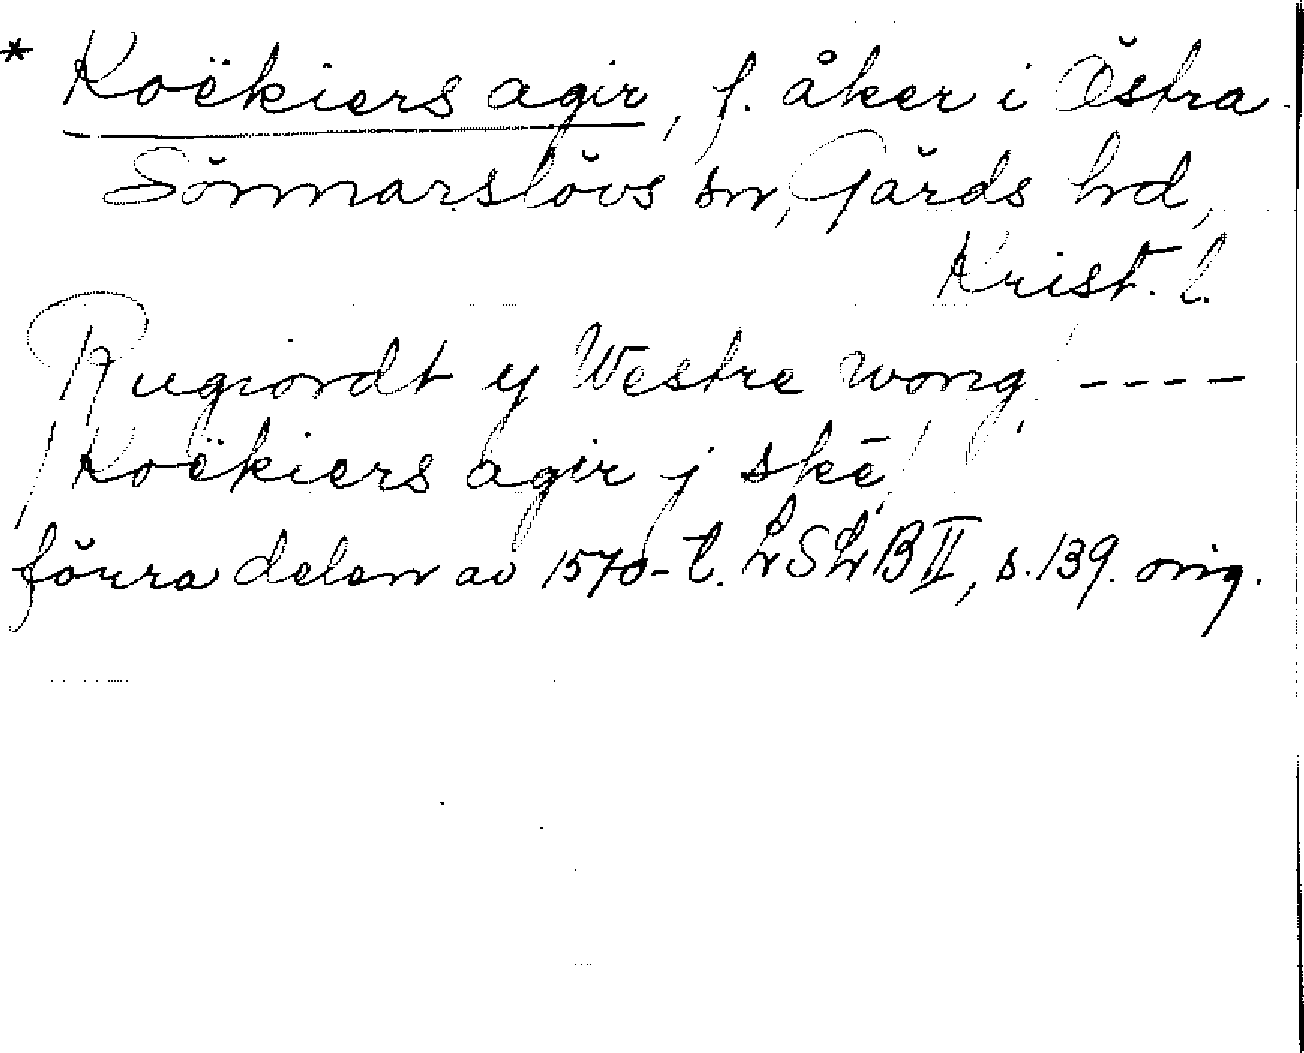 * Koëkiers agir, f. åker i Östra
Sönnarslövs sn, Gärds hd,
Krist. l.
Rugiordt y Westre wong! ----
/ Koëkiers agir j skē /
förra delen av 1570-t. LSLB II, s. 139. orig.